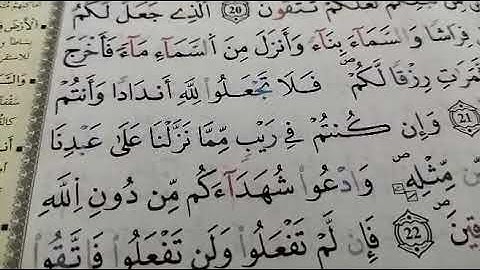 لَعَلَّكُمْ تَتَّقُونَ 20 الَّذِي جَعَلَ لَكُمُ
فِرَٰشًا وَالسَّمَآءَ بِنَآءً وَأَنزَلَ مِنَ السَّمَآءِ مَآءً فَأَخْرَجَ
ثَّمَرَٰتِ رِزْقًا لَّكُمْ فَلَا تَجْعَلُوا لِلَّهِ أَندَادًا وَأَنتُمْ
21 وَإِن كُنتُمْ فِي رَيْبٍ مِّمَّا نَزَّلْنَا عَلَىٰ عَبْدِنَا
مِّن مِّثْلِهِ وَادْعُوا شُهَدَآءَكُم مِّن دُونِ اللَّهِ
قِينَ 22 فَإِن لَّمْ تَفْعَلُوا وَلَن تَفْعَلُوا فَاتَّقُوا